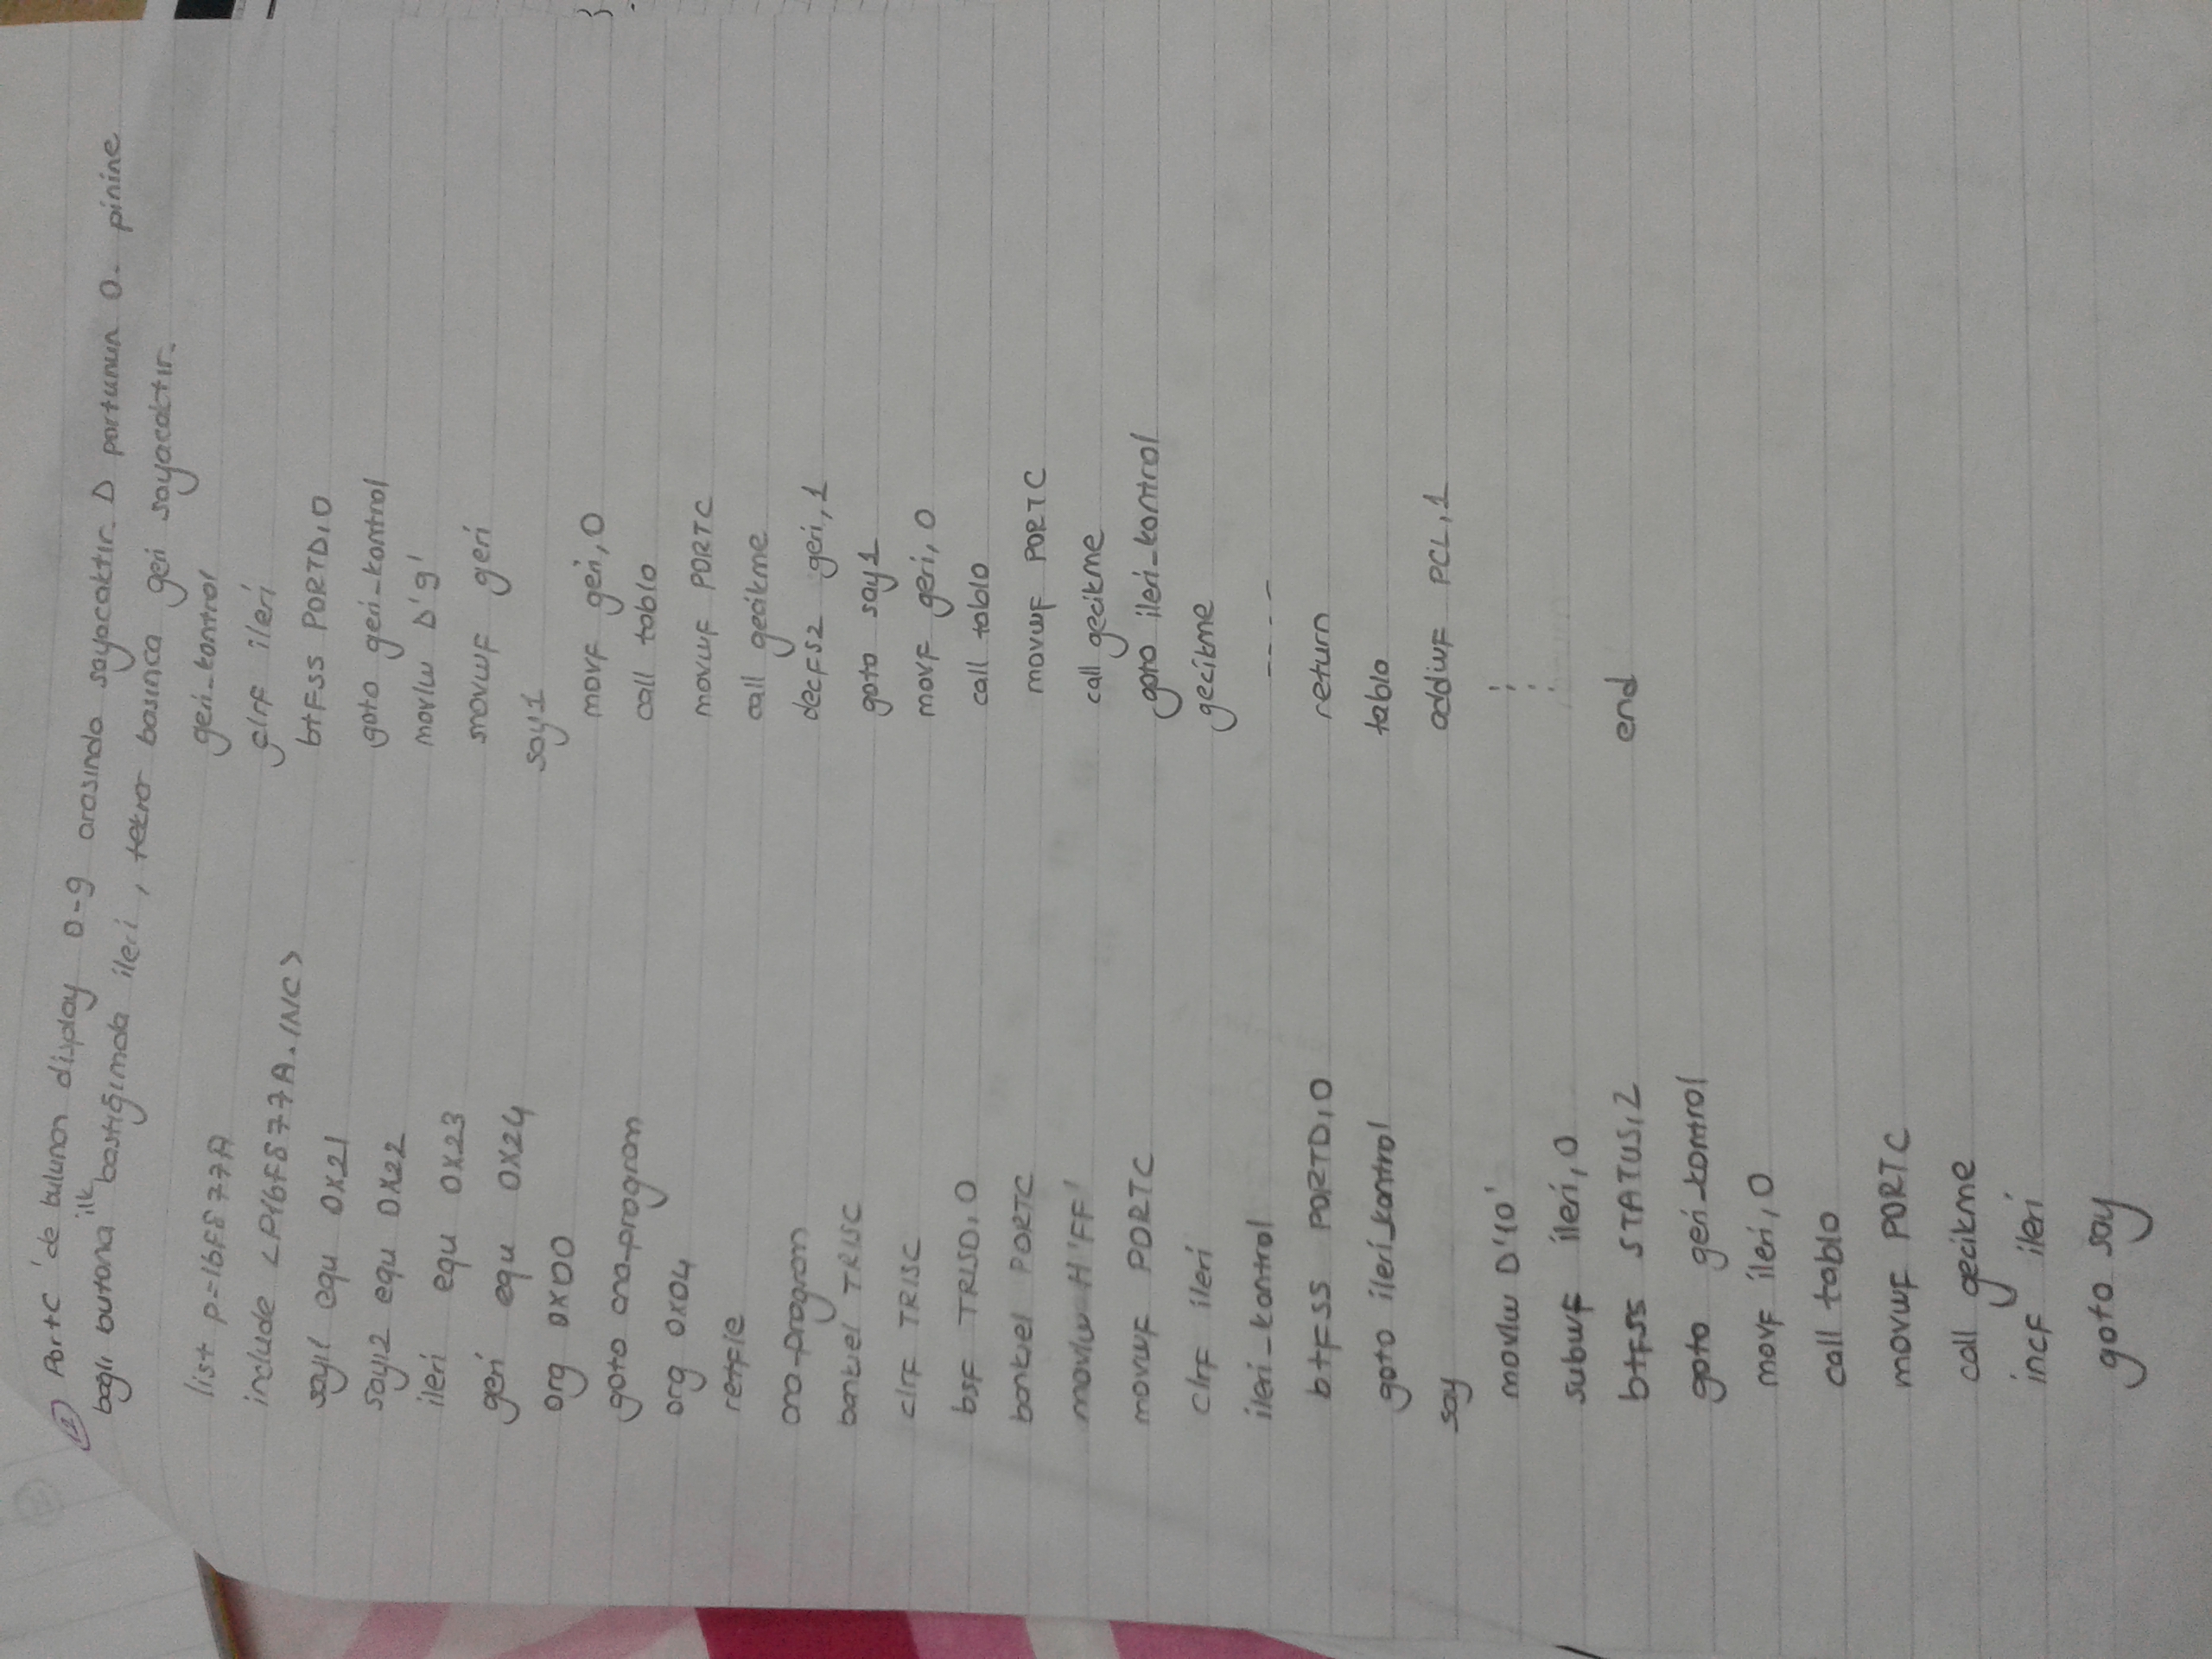 2 PortC 'de bulunan display 0-9 arasında sayacaktır. D portunun 0. pinine
bağlı butona ilk bastığımda ileri, tekrar basınca geri sayacaktır.
list p=16F877A
include <P16F877A.INC>
sayı1 equ 0X21
sayı2 equ 0X22
ileri equ 0X23
geri equ 0X24
org 0X00
goto ana-program
org 0x04
retfie
ana-program
banksel TRISC
clrf TRISC
bsf TRISD,0
banksel PORTC
movlw H'FF'
movwf PORTC
clrf ileri
ileri_kontrol
btfss PORTD,0
goto ileri_kontrol
say
movlw D'10'
subwf ileri,0
btfss STATUS,2
goto geri_kontrol
movf ileri,0
call tablo
movwf PORTC
call gecikme
incf ileri
goto say
geri_kontrol
clrf ileri
btfss PORTD,0
goto geri_kontrol
movlw D'9'
movwf geri
say1
movf geri,0
call tablo
movwf PORTC
call gecikme
decfsz geri,1
goto say1
movf geri,0
call tablo
movwf PORTC
call gecikme
goto ileri_kontrol
gecikme
----
return
tablo
addwf PCL,1
end